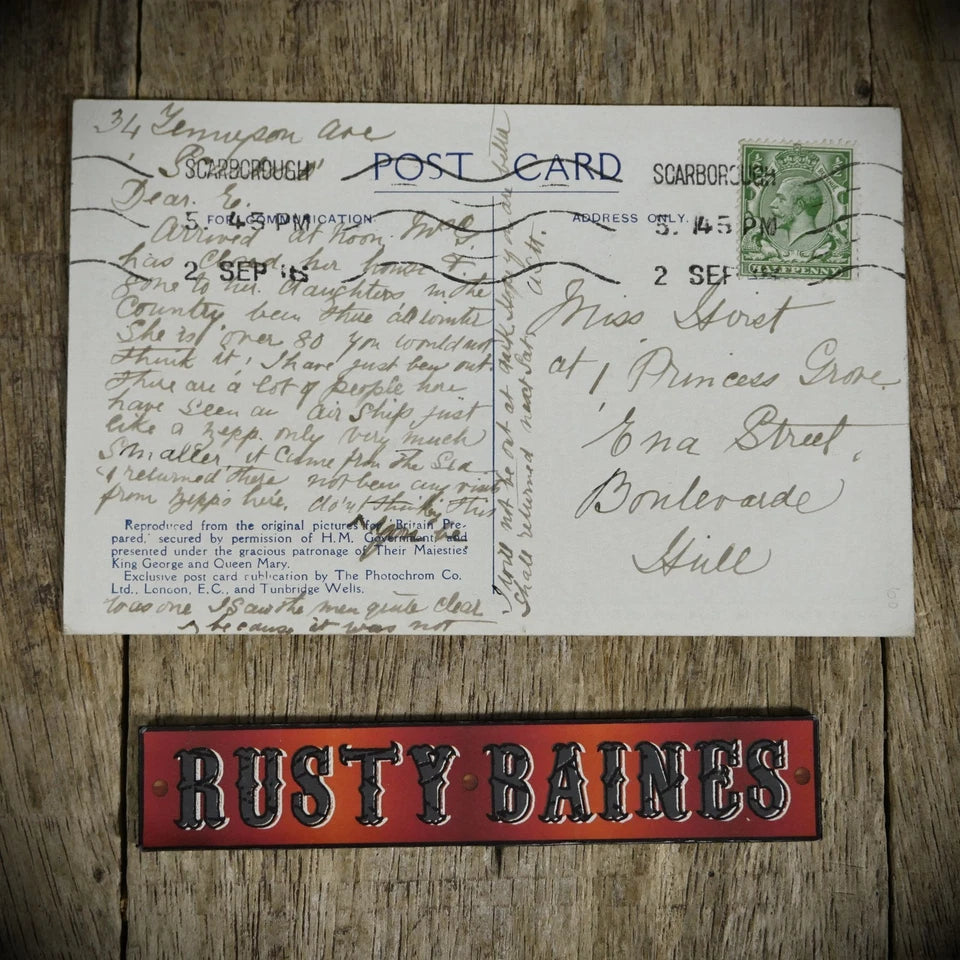 34 Tennyson Ave
Scarboro'
POST CARD
SCARBOROUGH
5. 45 PM
2 SEP 16
SCARBOROUGH
5. 45 PM
2 SEP
FOR COMMUNICATION.
ADDRESS ONLY.
HALFPENNY
Dear. E.
Arrived at noon. Mrs
has closed her house &
gone to her daughters in the
Country been there all winter
She is over 80 you would not
think it, I have just been out.
there are a lot of people here
have seen an air Ship just
like a Zepp. only very much
Smaller it came from the Sea
& returned there not been any visits
from Zepps here. don't thinking this
Reproduced from the original pictures for 'Britain Pre-
pared,' secured by permission of H.M. Government and
presented under the gracious patronage of Their Majesties
King George and Queen Mary.
Exclusive post card publication by The Photochrom Co.
Ltd., London, E.C., and Tunbridge Wells.
was one I saw the men quite clear
because it was not
I will not be out at dark hope you are better
Shall returned next Sat.
Miss Hirst
at 1 Princess Grove.
Ena Street,
Boulevarde
Hull
60
RUSTY BAINES